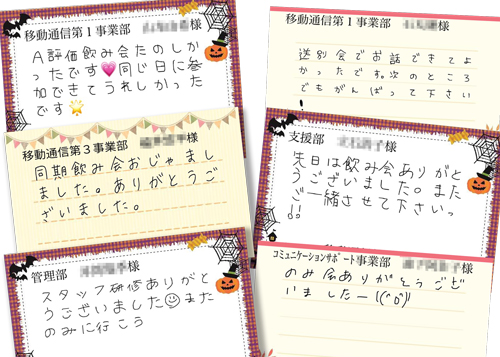 移動通信第1事業部 様
A評価飲み会たのしか
ったです💗同じ日に参
加できてうれしかった
です🌟
移動通信第1事業部 様
送別会でお話できてよ
かったです。次のところ
でもがんばって下さい
!
移動通信第3事業部 様
同期飲み会おじゃまし
ました。ありがとうご
ざいました。
支援部 様
先日は飲み会ありがと
うございました。また
ご一緒させて下さいっ
!!
管理部 様
スタッフ研修ありがと
うございました☺また
のみに行こう
コミュニケーションサポート事業部 様
のみ会ありがとうござ
いましたー!(^o^)!